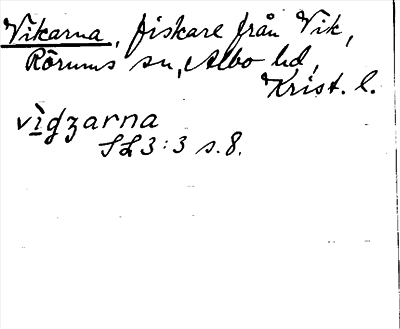 Vikarna, fiskare från Vik,
Rörums sn, Albo hd,
Krist. l.
vìgzarna
SL 3:3 s. 8.